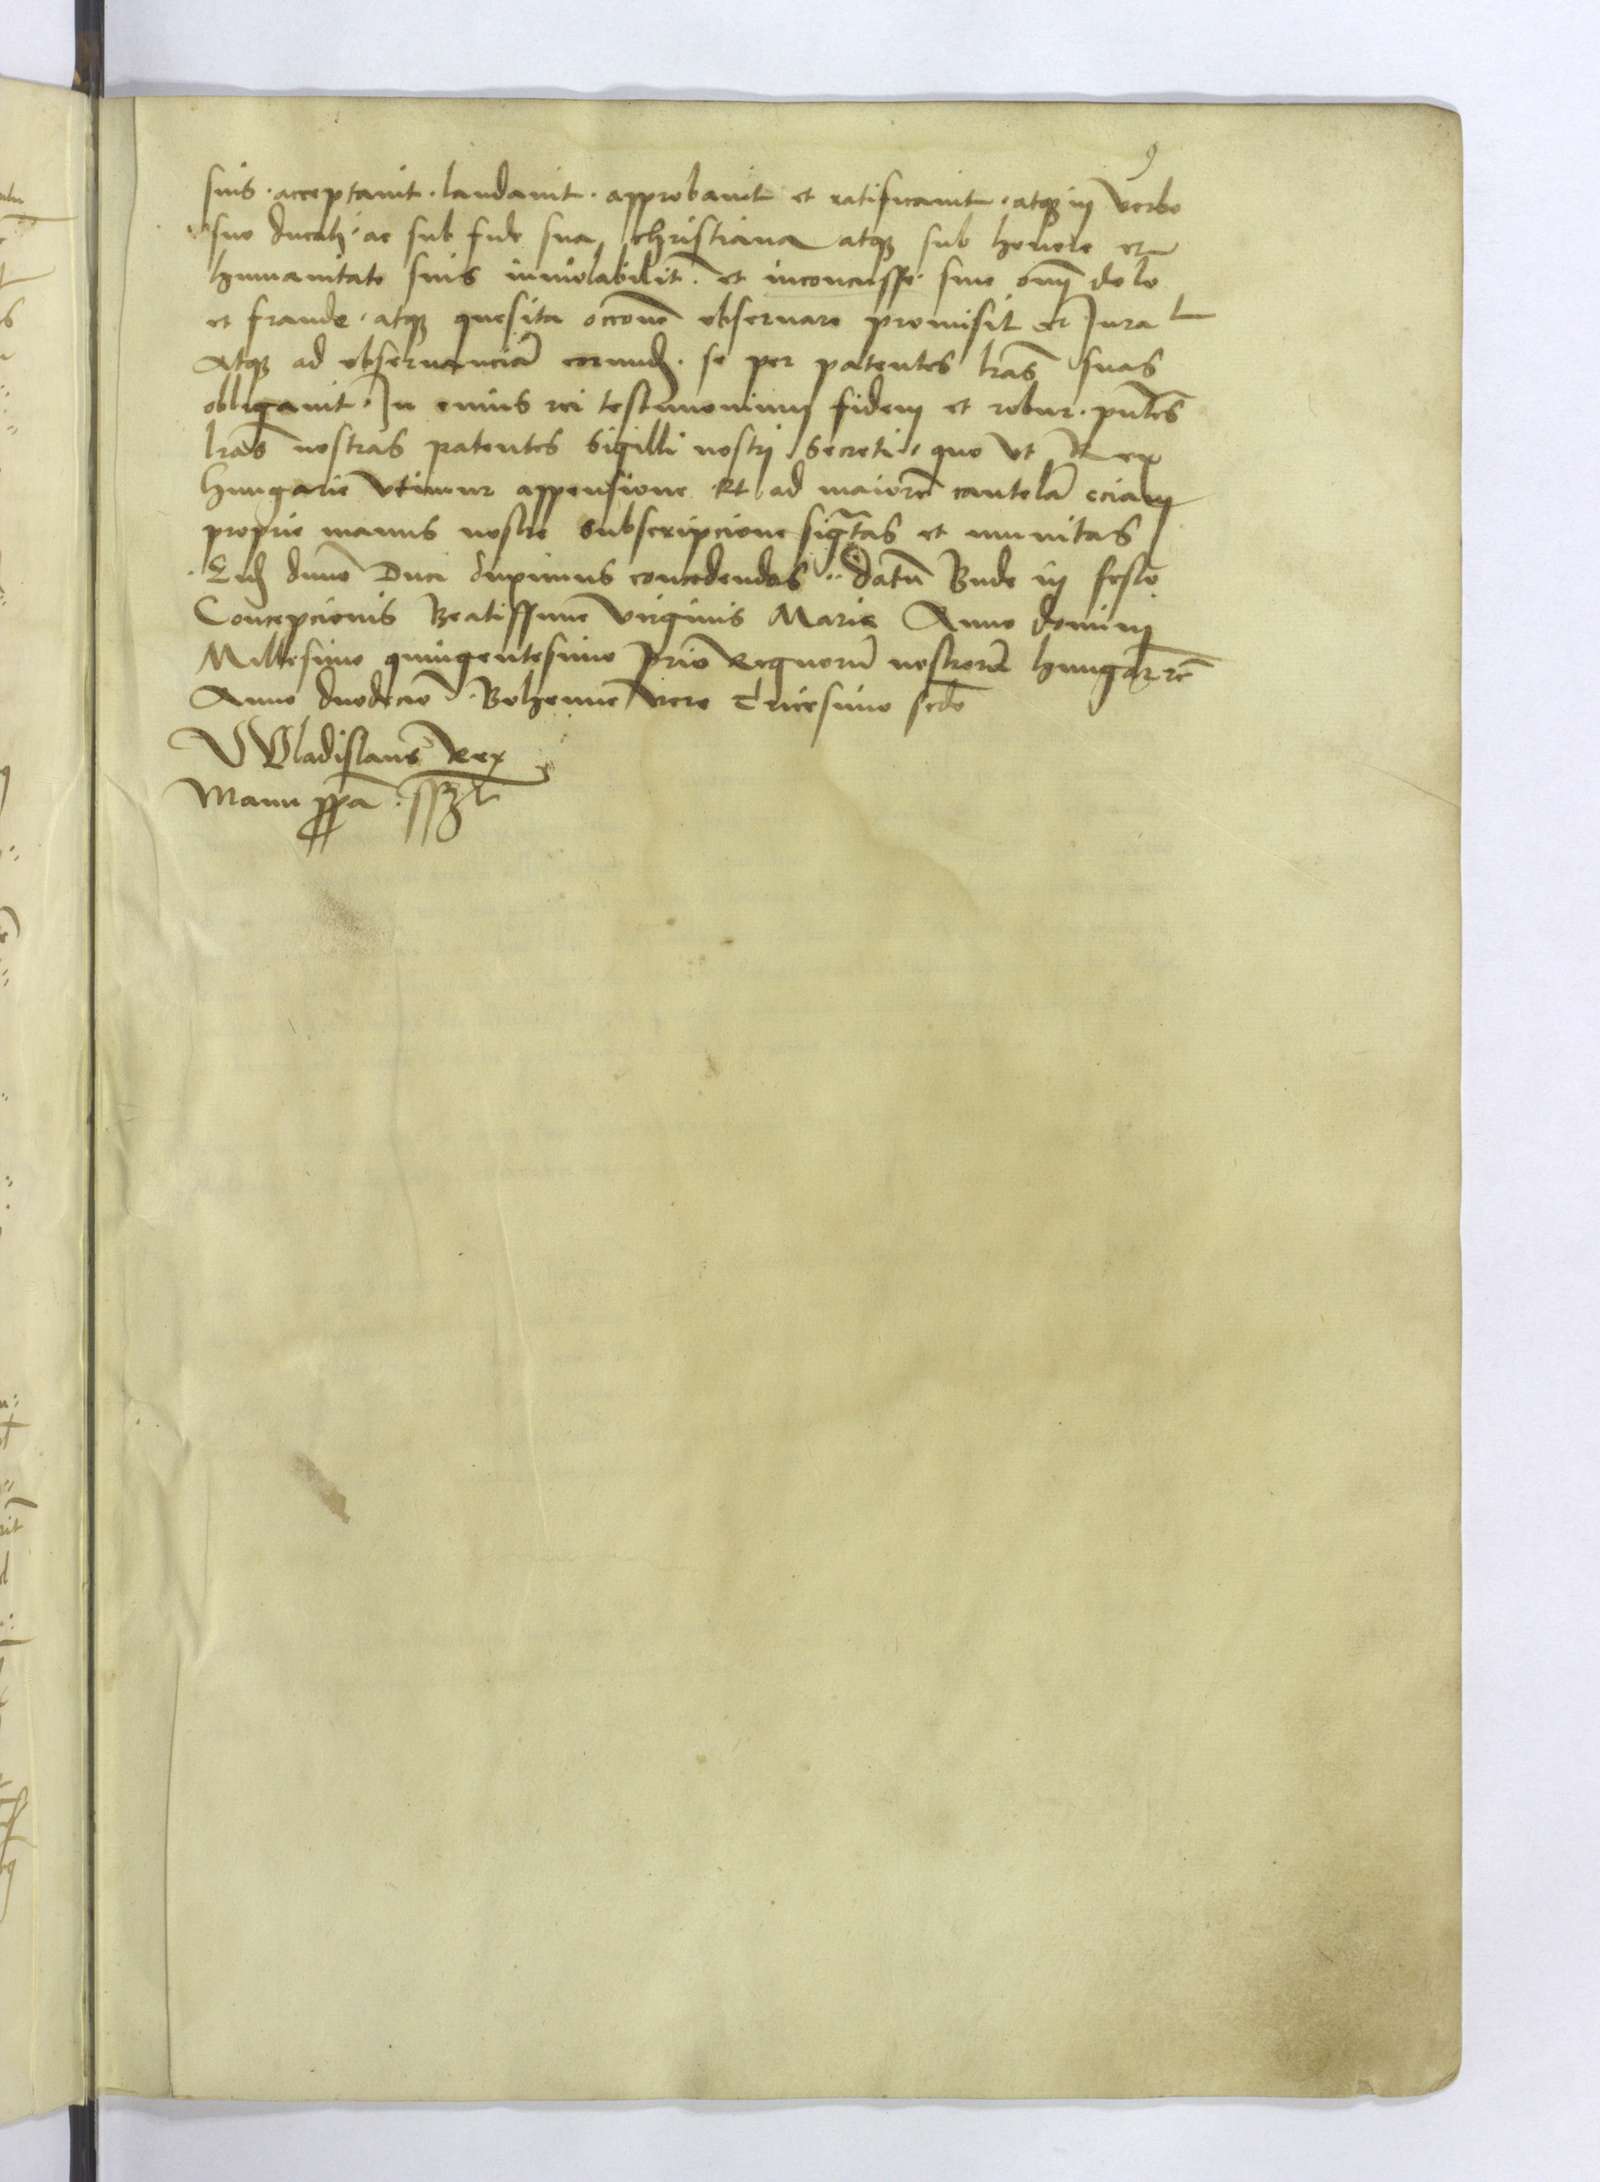 9
suis · acceptauit · laudauit · approbauit et ratificauit · atq3 in verbo
suo ducali · ac sub fide sua christiana atq3 sub honore et
humanitate suis inuiolabilit͛ · et inconcusse · sine om̄i dolo
et fraude · atq3 quesita occōne obseruare promisit et Jura
Atq3 ad obseruanciā eorund̄ · se per patentes lr̄as suas
obligauit · In cuius rei testimonium fidem et robur · pn̄tes
lr̄as nostras patentes Sigilli nostri Secreti · quo vt Rex
hungarie vtimur appensione Et ad maiorē cautelā eciam
proprie manus nostre Subscripcione sigtas et munitas
Eid̄ dn̄o Duci duximus concedendas · · datū Bude in festo
Concepcionis Beatissime virginis Marie Anno domini
Millesimo quingentesimo Prīo Regnorū nostrorū hungar rē
Anno duodecīo · Bohemie vero Tricesimo sc̄do
Wladislaus Rex
Manu pp̄a · ssz